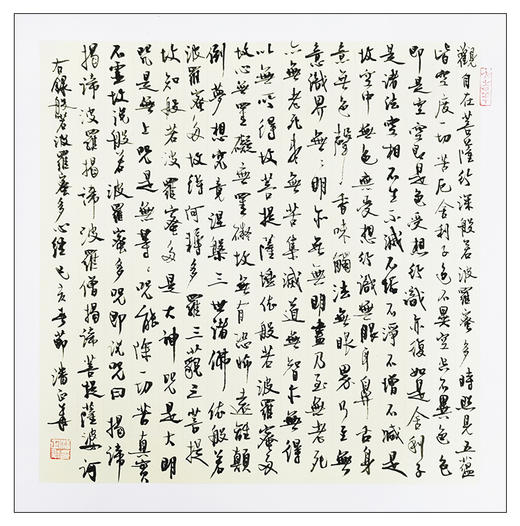 觀自在菩薩行深般若波羅蜜多時照見五蘊
皆空度一切苦厄舍利子色不異空空不異色色
即是空空即是色受想行識亦復如是舍利子
是諸法空相不生不滅不垢不淨不增不減是
故空中無色無受想行識無眼耳鼻舌身
意無色聲香味觸法無眼界乃至無
意識界無無明亦無無明盡乃至無老死
亦無老死盡無苦集滅道無智亦無得
以無所得故菩提薩埵依般若波羅蜜多
故心無罣礙無罣礙故無有恐怖遠離顛
倒夢想究竟涅槃三世諸佛依般若
波羅蜜多故得阿耨多羅三藐三菩提
故知般若波羅蜜多是大神咒是大明
咒是無上咒是無等等咒能除一切苦真實
不虛故說般若波羅蜜多咒即說咒曰揭諦
揭諦波羅揭諦波羅僧揭諦菩提薩婆訶
右錄般若波羅蜜多心經己亥春節潘